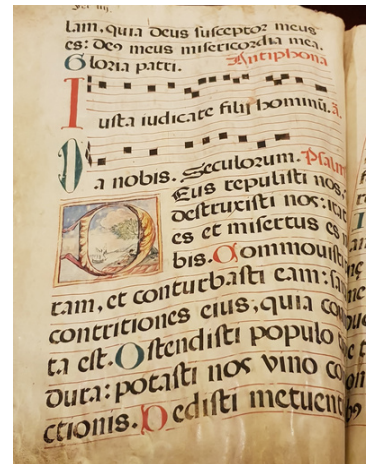 lam, quia deus susceptor meus
es: deꝰ meus misericordia mea.
Gloria patri. Antiphonā
Iusta iudicate filij hominū. ā.
Da nobis. Seculorum. Psalm
Deus repulisti nos,
destruxisti nos: irat
es et misertus es n
bis. Commovist
ram, et conturbasti eam: sa
contritiones eius, quia co
ta est. Ostendisti populo
dura: potasti nos vino co
ctionis. Dedisti metuent